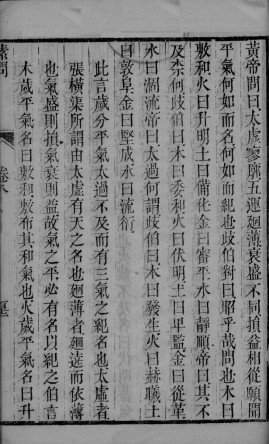 黃帝問曰太虛寥廓五運廻薄衰盛不同損益相從願聞
平氣何如而名何如而紀也歧伯對曰昭乎哉問也木曰
敷和火曰升明土曰備化金曰審平水曰靜順帝曰其不
及柰何歧伯曰木曰委和火曰伏明土曰卑監金曰從革
水曰涸流帝曰太過何謂歧伯曰木曰發生火曰赫曦土
曰敦阜金曰堅成水曰流衍
此言歲分平氣太過不及而有三氣之紀名也太虛者
張橫渠所謂由太虛有天之名也廻薄者廻遠而依薄
也氣盛則損氣衰則益故氣之平必有名以紀之伯言
木歲平氣名曰敷和敷布其和氣也火歲平氣名曰升
素問
卷八